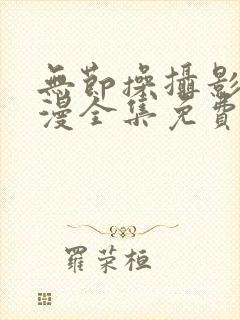 無節操攝影
漫全集免費
羅荣桓